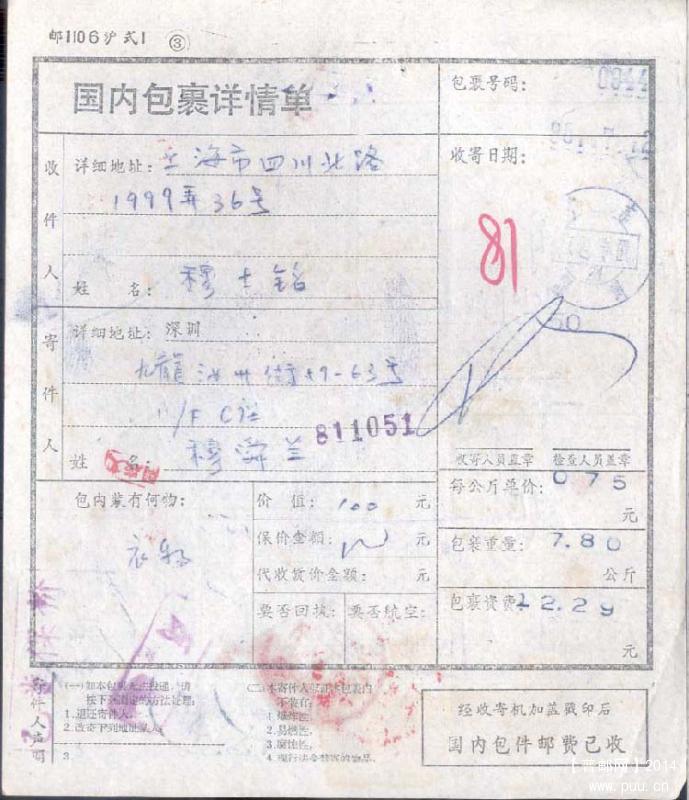 邮1106沪式1 ③
国内包裹详情单
包裹号码:
收件人
详细地址: 上海市四川北路
1999弄36号
姓名:
收寄日期:
81
寄件人
详细地址: 深圳
59-63号
1/F C座
811051
姓名:
收寄人员盖章 检查人员盖章
包内装有何物:
衣物
价值: 100 元
保价金额: 元
代收货价金额: 元
要否回执: 要否航空:
每公斤单价: 075 元
包裹重量: 7.80 公斤
包裹资费: 12.29 元
寄件人声明
(一)如本包裹无法投递,请
按下列指定的方法处理:
1.退还寄件人。
2.改寄下列地址某人:
3
(二)本寄件人保证本包裹内
不装有:
1.爆炸性,
2.易燃性,
3.腐蚀性,
4.现行法令禁寄的物品。
经收寄机加盖戳印后
国内包件邮费已收
【普邮网】2014
www.puu.cn